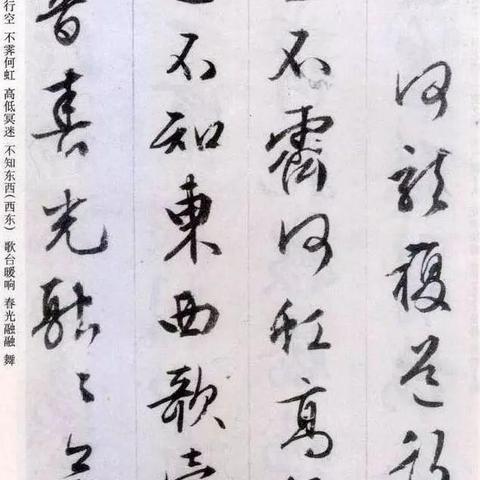 何龍複道行
不霽何虹高
不知東西歌臺
響春光融々
行空 不霁何虹 高低冥迷 不知东西(西东) 歌台暖响 春光融融 舞